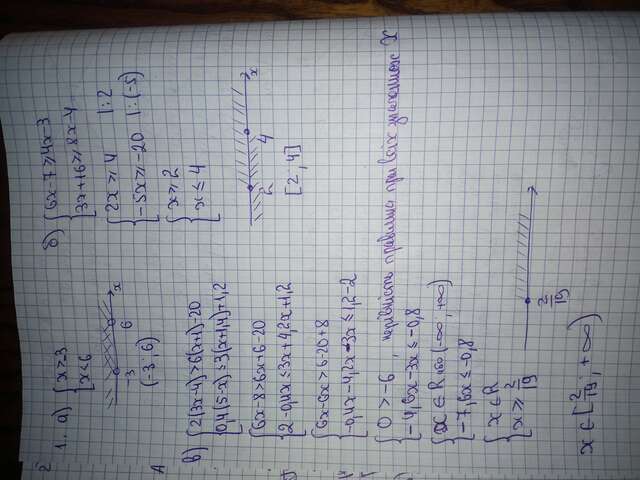 1. а) { x > -3
{ x < 6
-3 6 x
(-3; 6)
б) { 6x-7 ≥ 4x-3
{ 3x+16 ≥ 8x-4
{ 2x ≥ 4 |:2
{ -5x ≥ -20 |:(-5)
{ x ≥ 2
{ x ≤ 4
2 4 x
[2; 4]
в) { 2(3x-4) > 6(x+1)-20
{ 0,4(5-x) ≤ 3(x+1,4)+1,2
{ 6x-8 > 6x+6-20
{ 2-0,4x ≤ 3x+4,2x+1,2
{ 6x-6x > 6-20+8
{ -0,4x-4,2x-3x ≤ 1,2-2
{ 0 > -6, неравенство справедливо при всех значениях x
{ -4,6x-3x ≤ -0,8
{ x ∈ R или (-∞; +∞)
{ -7,6x ≤ -0,8
{ x ∈ R
{ x ≥ 2/19
2/19
x ∈ [2/19; +∞)